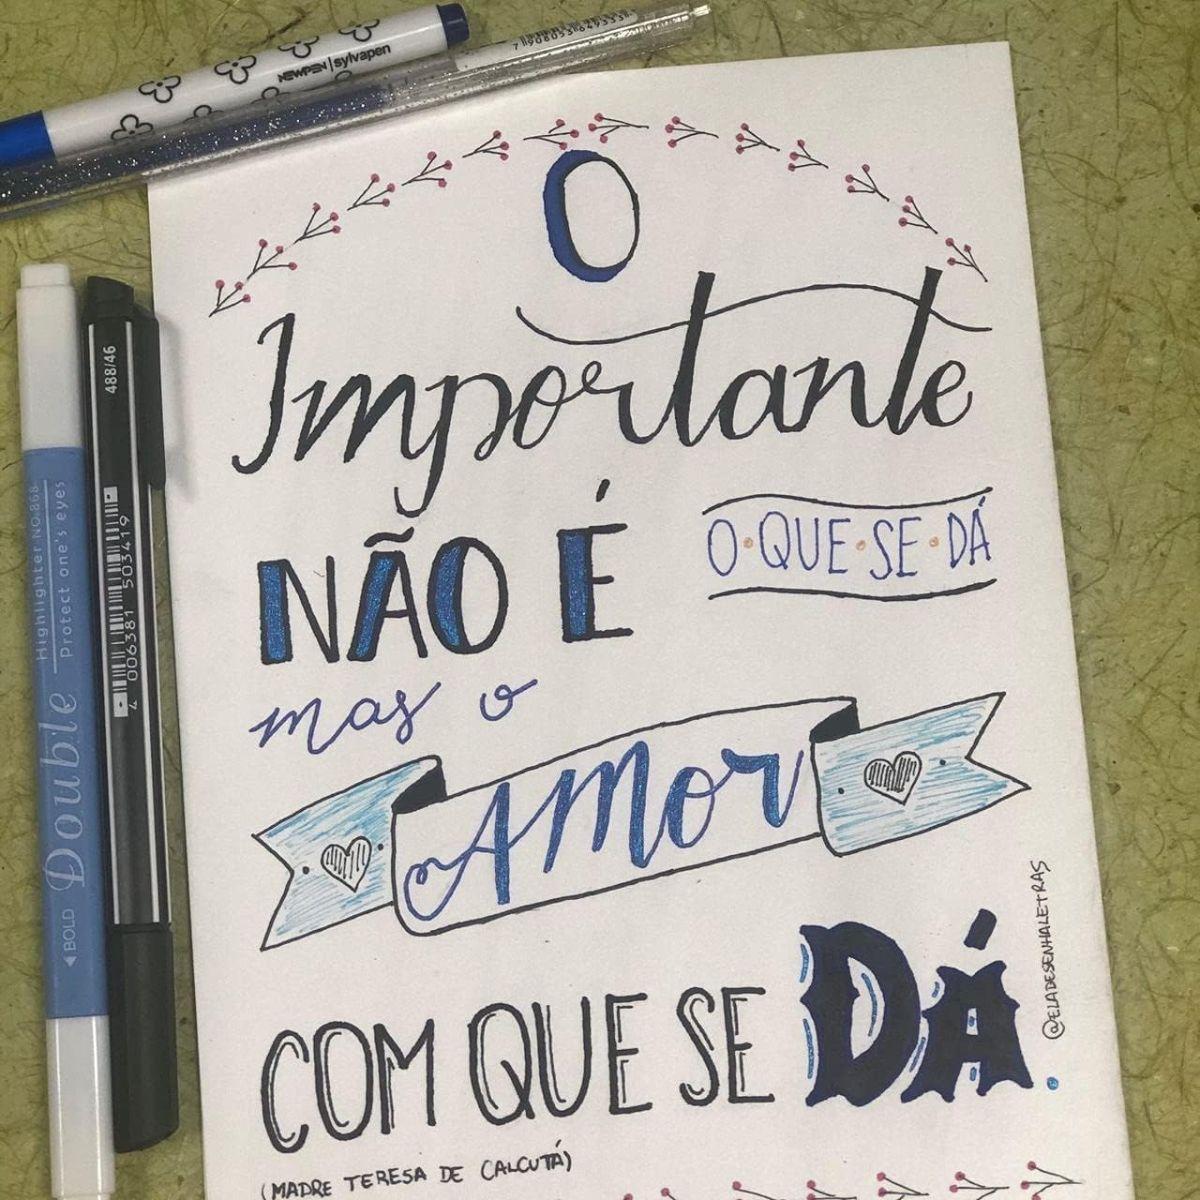 NEWPEN | sylvapen
7 908053 649333
O
Importante
NÃO É
O·QUE·SE·DÁ
mas o
AMOR
COM QUE SE DÁ.
(MADRE TERESA DE CALCUTÁ)
@ELADESENHALETRAS
488/46
4 006381 503419
Highlighter NO.868
Protect one's eyes
Double
◀BOLD